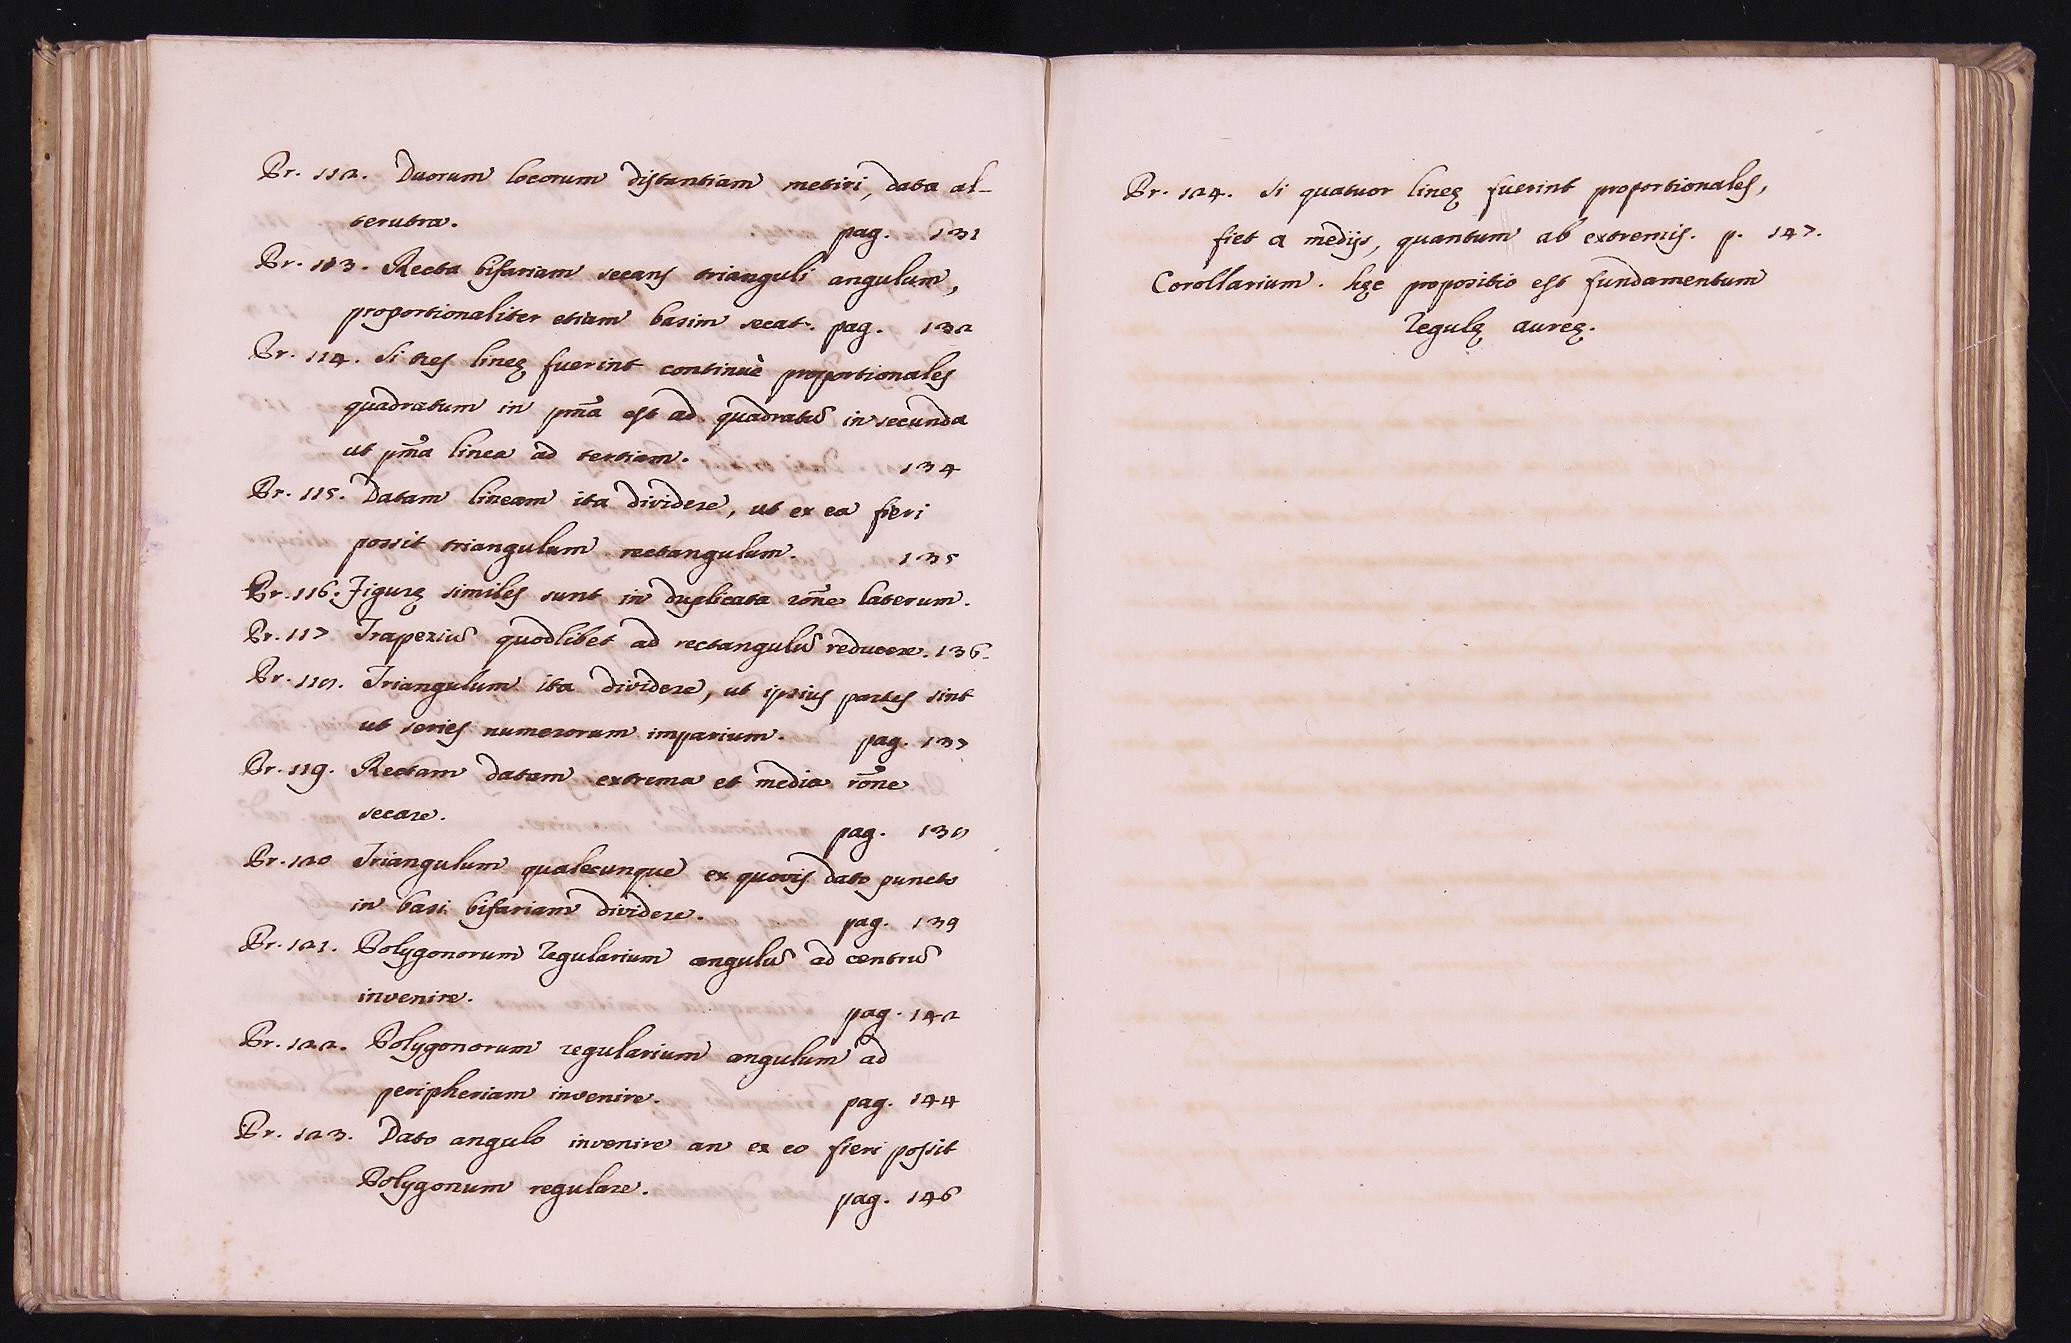 Pr. 112. Duorum locorum distantiam metiri, data al-
terutra. pag. 131
Pr. 113. Recta bifariam secans trianguli angulum,
proportionaliter etiam basim secat. pag. 132
Pr. 114. Si tres lineę fuerint continuè proportionales
quadratum in pm̃a est ad quadratũ in secunda
ut pm̃a linea ad tertiam. 134
Pr. 115. Datam lineam ita dividere, ut ex ea fieri
possit triangulum rectangulum. 135
Pr. 116. Figurę similes sunt in duplicata rõne laterum.
Pr. 117 Trapeziũ quodlibet ad rectangulũ reducere. 136.
Pr. 118. Triangulum ita dividere, ut ipsius partes sint
ut series numerorum imparium. pag. 137
Pr. 119. Rectam datam extrema et media rõne
secare. pag. 138
Pr. 120 Triangulum qualecunque ex quovis dato puncto
in basi bifariam dividere. pag. 139
Pr. 121. Polygonorum regularium angulũ ad centrũ
invenire. pag. 142
Pr. 122. Polygonorum regularium angulum ad
peripheriam invenire. pag. 144
Pr. 123. Dato angulo invenire an ex eo fieri possit
Polygonum regulare. pag. 146
Pr. 124. Si quatuor lineę fuerint proportionales,
fiet a medijs, quantum ab extremis. p. 147.
Corollarium. hęc propositio est fundamentum
regulę aureę.